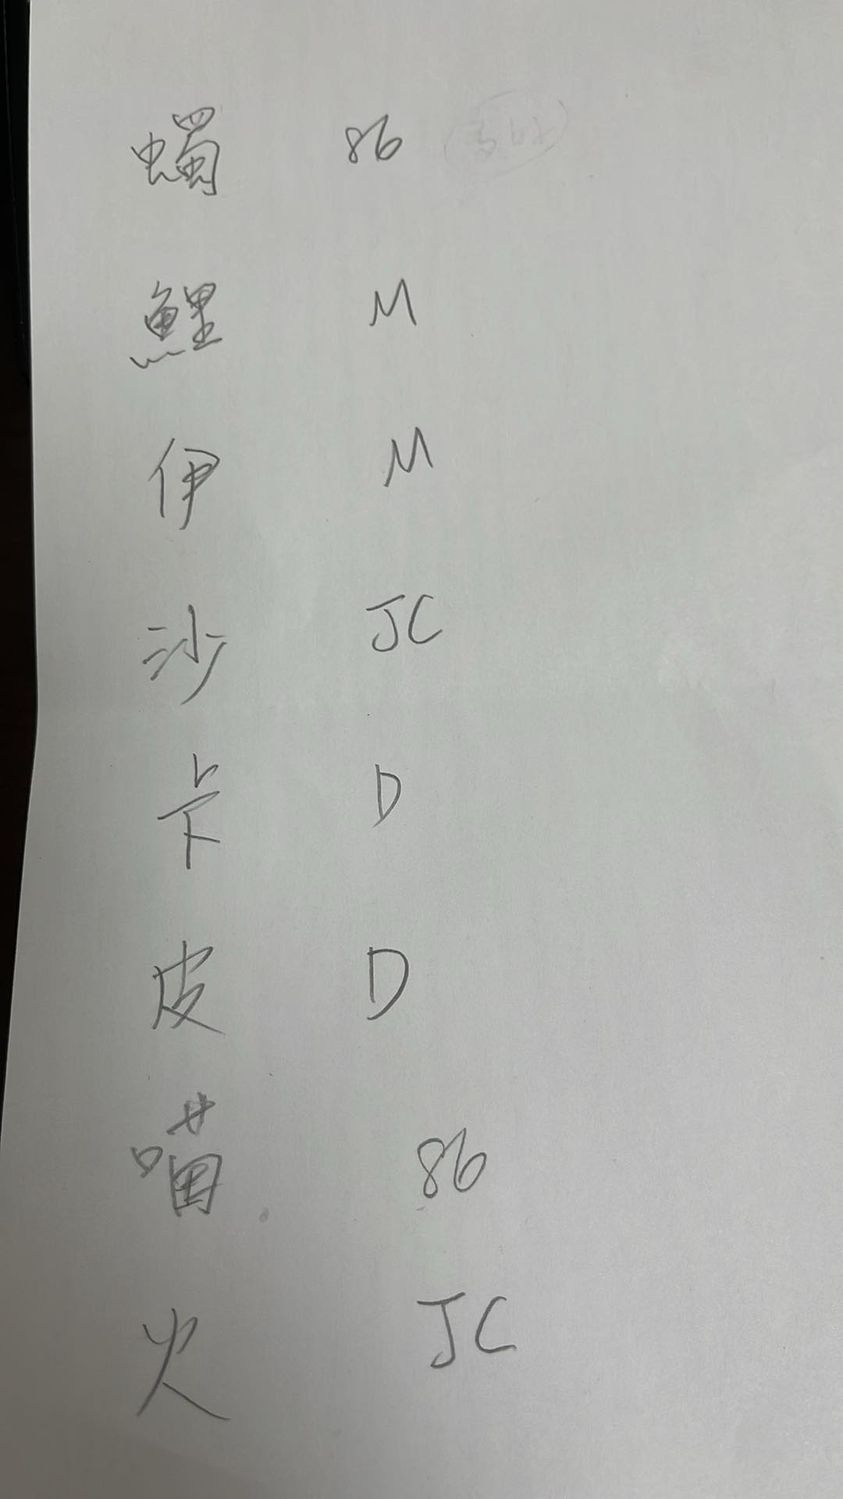 蠋 86
鯉 M
伊 M
沙 JC
卡 D
皮 D
喵 86
火 JC